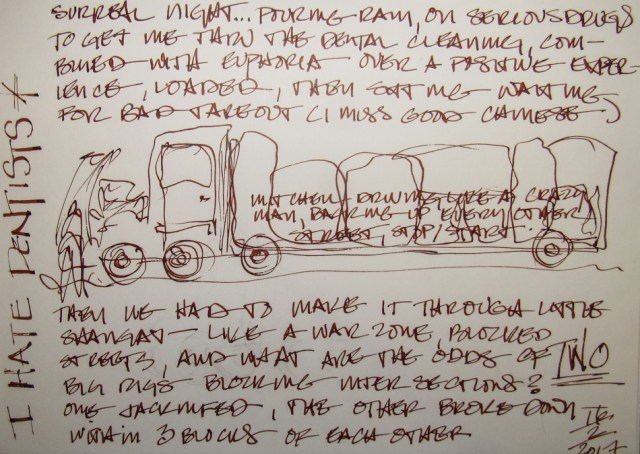 SURREAL NIGHT... POURING RAIN, ON SERIOUS DRUGS
TO GET ME THRU THE DENTAL CLEANING, COM-
BINED WITH EUPHORIA OVER A POSITIVE EXPER-
IENCE, LOADED, THEN SITTING WAITING
FOR BAD TAKEOUT (I MISS GOOD CHINESE.)
I HATE DENTISTS
MITCHELL DRIVING LIKE A CRAZY
MAN, BACKING UP EVERY OTHER
STREET, STOP/START.
THEN WE HAD TO MAKE IT THROUGH A LITTLE
LIKE A WAR ZONE, BLOCKED
STREETS, AND WHAT ARE THE ODDS OF TWO
BIG RIGS BLOCKING INTERSECTIONS?
ONE JACKNIFED, THE OTHER BROKE DOWN
WITHIN 3 BLOCKS OF EACH OTHER
2
2017